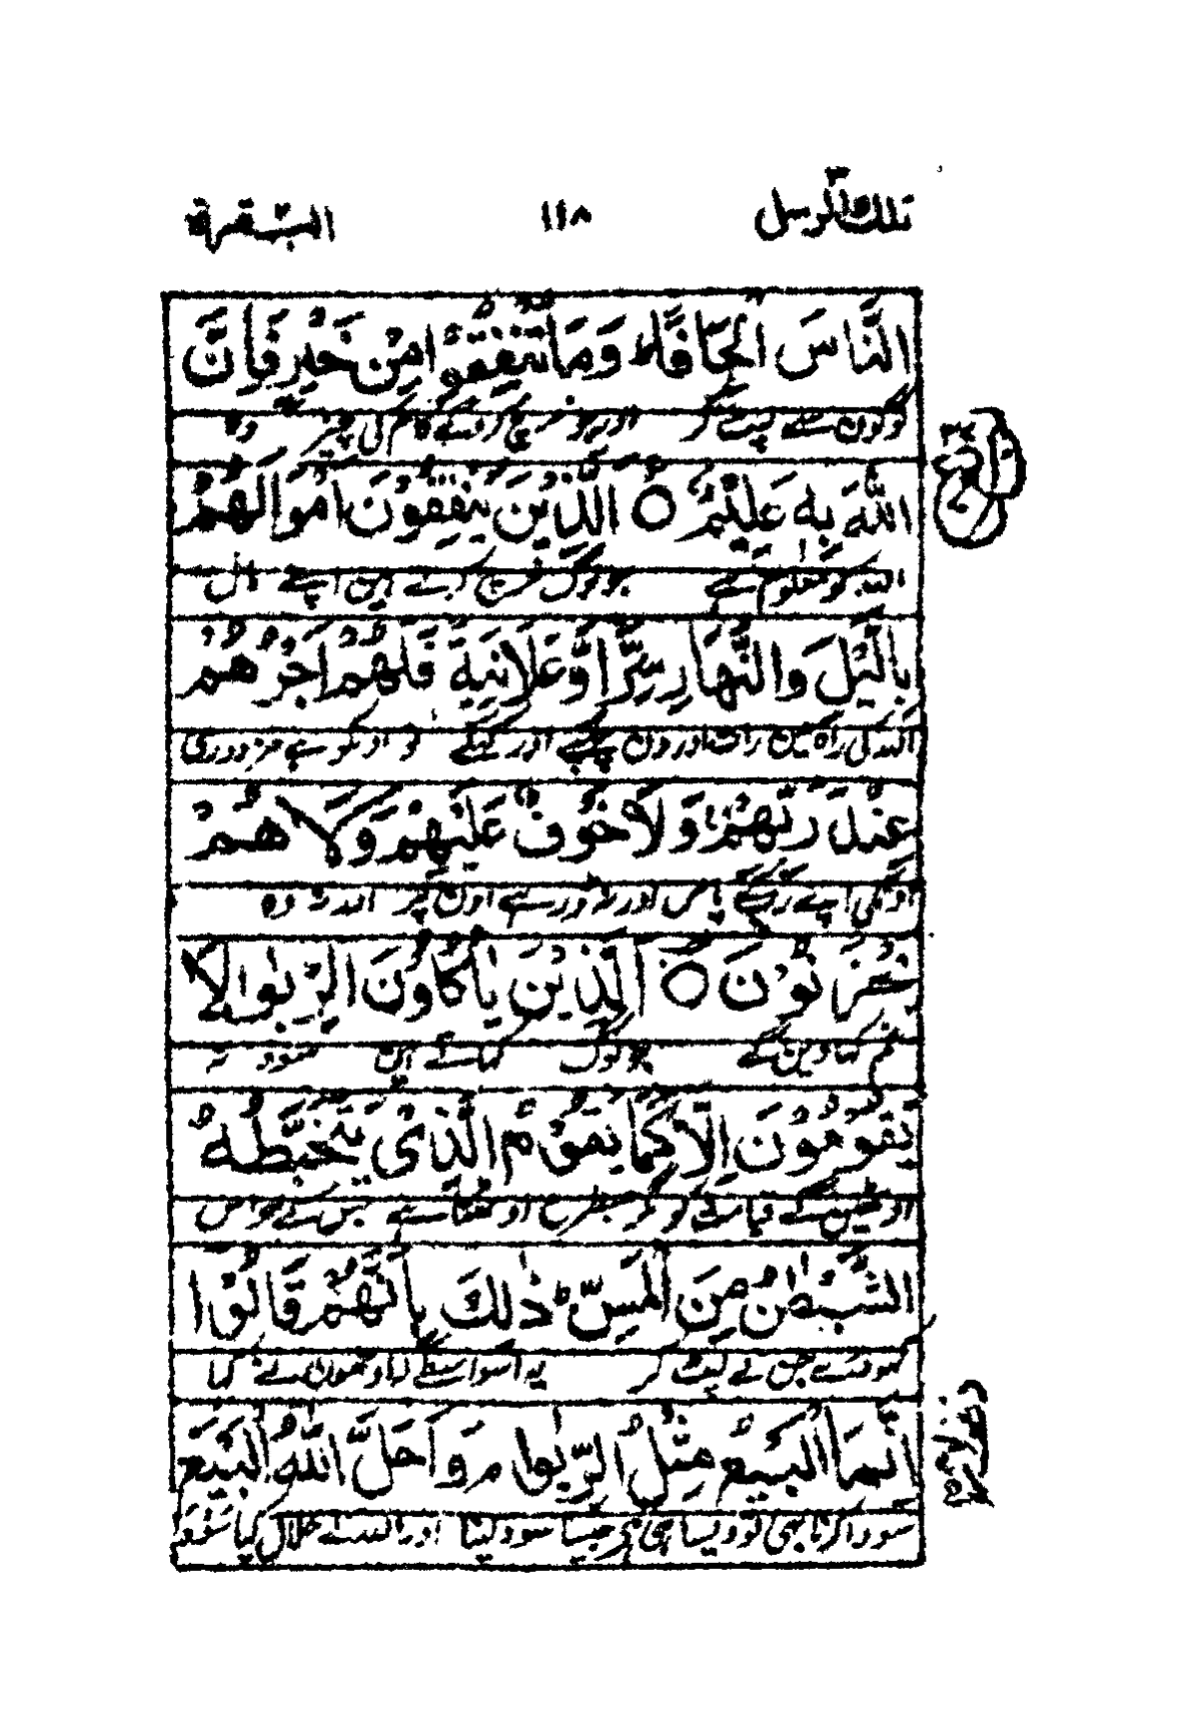 تلك الرسل ٣ ١١٨ البقرة
النَّاسَ اِلْحَافًا ؕ وَمَا تُنْفِقُوْا مِنْ خَيْرٍ فَاِنَّ
لوگون سے لپٹ کر اور جو خرچ کروگے کام کی چیز وہ
اللّٰهَ بِهٖ عَلِيْمٌ ۝ اَلَّذِيْنَ يُنْفِقُوْنَ اَمْوَالَهُمْ
اللہ کو معلوم ہے جو لوگ خرچ کرتے ہین اپنے مال
بِالَّيْلِ وَالنَّهَارِ سِرًّا وَّعَلَانِيَةً فَلَهُمْ اَجْرُهُمْ
اللہ کی راہ مین رات اور دن چھپے اور کھلے تو اونکو ہے مزدوری
عِنْدَ رَبِّهِمْ ۚ وَلَا خَوْفٌ عَلَيْهِمْ وَلَا هُمْ
اونکی اپنے رب کے پاس اور نہ ڈر ہے اون پر اور نہ وہ
يَحْزَنُوْنَ ۝ اَلَّذِيْنَ يَاْكُلُوْنَ الرِّبٰوا لَا
غم کھاوین گے جو لوگ کھاتے ہین سود نہ
يَقُوْمُوْنَ اِلَّا كَمَا يَقُوْمُ الَّذِيْ يَتَخَبَّطُهُ
اوٹھین گے قیامت کو مگر جسطرح اوٹھتا ہے جس کے حواس
الشَّيْطٰنُ مِنَ الْمَسِّ ؕ ذٰلِكَ بِاَنَّهُمْ قَالُوْۤا
کھو دئے جن نے لپٹ کر یہ اسواسطے کہ اونھون نے کہا
اِنَّمَا الْبَيْعُ مِثْلُ الرِّبٰوا ۘ وَاَحَلَّ اللّٰهُ الْبَيْعَ
سودا کرنا بھی تو ویسا ہی ہے جیسا سود لینا اور اللہ نے حلال کیا سودا